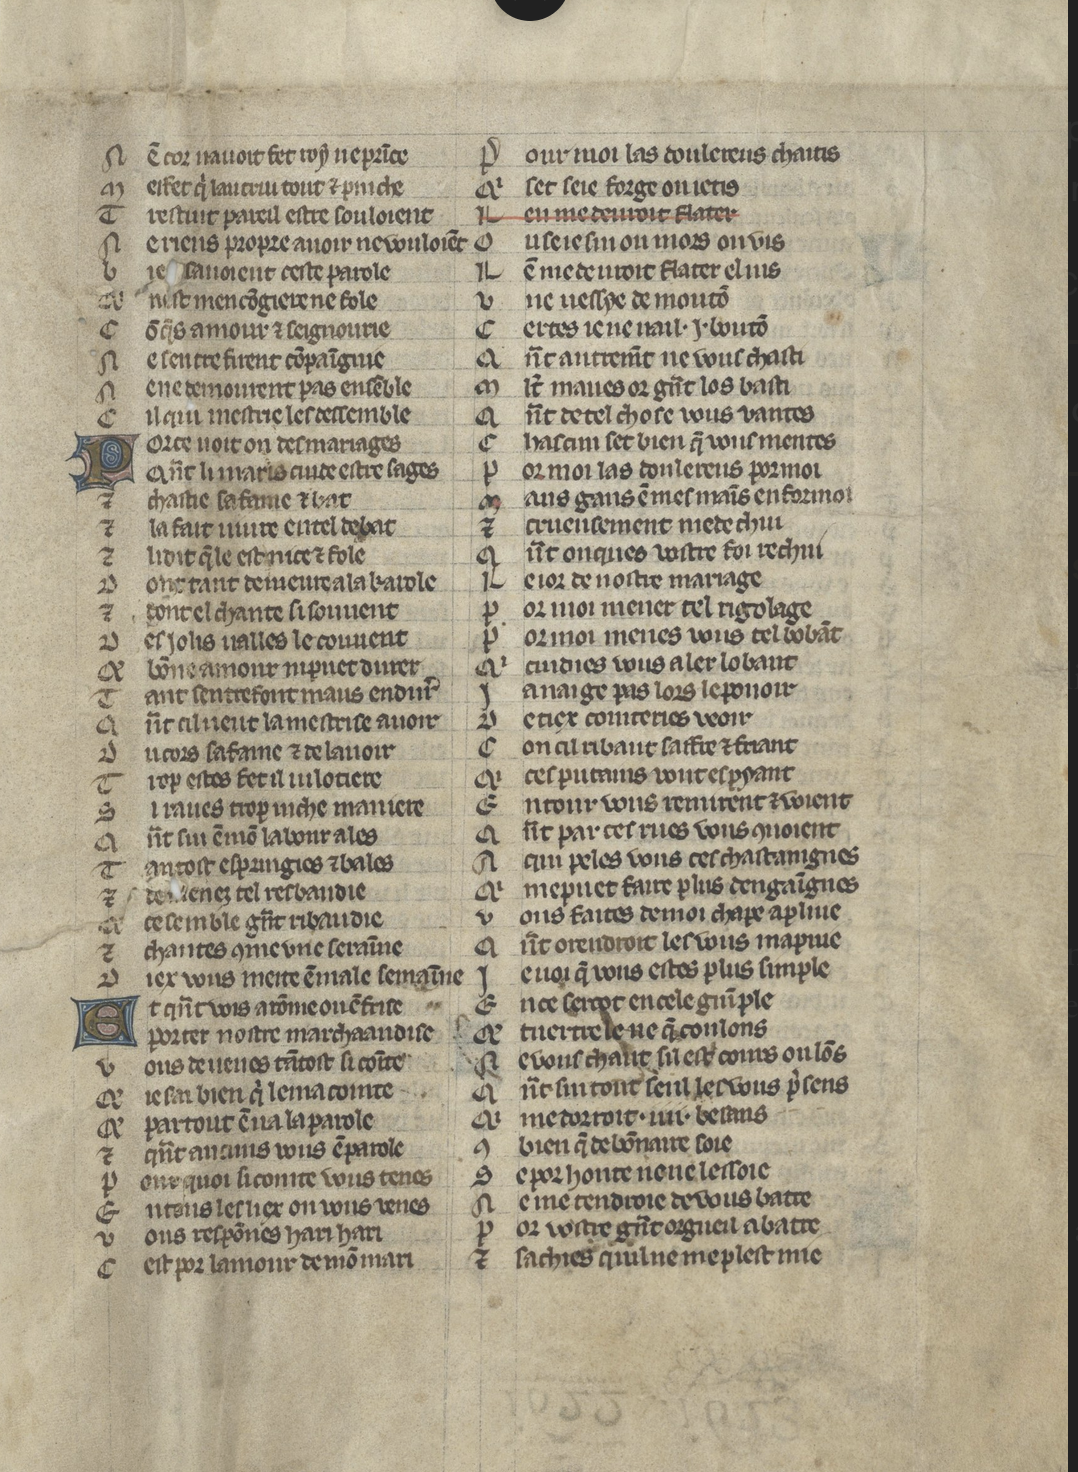 N ē cor nauoit fet roy ne prīce
M esfet q̇ lautrui tout ⁊ prinche
T restuit pareil estre souloient
N e riens propre auoir ne vouloiēt
b ie sauoient ceste parole
Q̃ nest mencōgiere ne fole
C ōq̄s amour ⁊ seignourie
N e sentrefirent cōpaīgnie
N e ne demourent pas ensēble
C il qui mestrie les dessemble
P Orce uoit on des mariages
Qn̄t li maris cuide estre sages
⁊ chastie sa fame ⁊ bat
⁊ la fait uiure en tel debat
⁊ li dit q̄le est nice ⁊ fole
D ont tant demeure a la barole
⁊ dont el chante si souuent
D es jolis ualles le couuent
Q̃ bōne amour ni puet durer
T ant sentrefont maus endurer
Q n̄t cil ueut la mestrise auoir
D u cors sa fame ⁊ de lauoir
T rop estes fet il uilotiere
S i raues trop niche maniere
Q n̄t sui ē mō labour ales
T antost espringies ⁊ bales
⁊ demenez tel resbaudie
Q̃ ce semble gn̄t ribaudie
⁊ chantes 9me vne seraīne
D iex vous mette ē male semaīne
E t qn̄t vois a rōme ou ē frise
porter nostre marchaandise
v ous deuenes tātost si coīte
Q̃ ie sai bien q̇ le ma comte
Q̃ par tout ē ua la parole
⁊ qn̄t aucuns vous ēparole
P our quoi si comte vous tenes
E n tous les liex ou vous venes
v ous respōnes hari hari
C est por lamour de mō mari
P our moi las doulereus chaitis
Q̃ set seie forge ou ietis
L en me deuroit flater
O u se ie sui ou mors ou vis
L ē me deuroit flater el uis
v ne uessye de moutō
C ertes ie ne uail .j. boutō
Q n̄t autremt̄ ne vous chasti
M lt̄ maues or gn̄t los basti
Q n̄t de tel chose vous vantes
C hascun set bien q̄ vous mentes
P or moi las doulereus por moi
M aus gans ē mes maīs enformoi
⁊ crueusement me dechui
Q n̄t onques vostre foi rechui
L e ior de nostre mariage
P or moi mener tel rigolage
P or moi menes vous tel bobāt
Q̃ cuidies vous aler lobant
J a nai ge pas lors le pouoir
D e tiex cointeries veoir
C on cil ribaut saffre ⁊ friant
Q̃ ces putains vont espyant
E ntour vous remirent ⁊ voient
Q n̄t par ces rues vous quoient
A qui peles vous ces chastaingnes
Q̃ me puet faire plus dengaīgnes
v ous faites de moi chape a pluie
Q n̄t orendroit les vous mapruie
J e uoi q̄ vous estes plus simple
E n ce sercot en cele guīple
Q̃ tuertrele ne q̄ coulons
N e vous chaut sil est cours ou lōs
Q n̄t sui tout seul les vous p̄sens
Q̃ me dorroit .iiii. besans
9 bien q̄ debōnaire soie
S e por honte ne ne lessoie
N e me tendroie de vous batre
P or vostre gn̄t orgueil abatre
⁊ sachies quil ne me plest mie